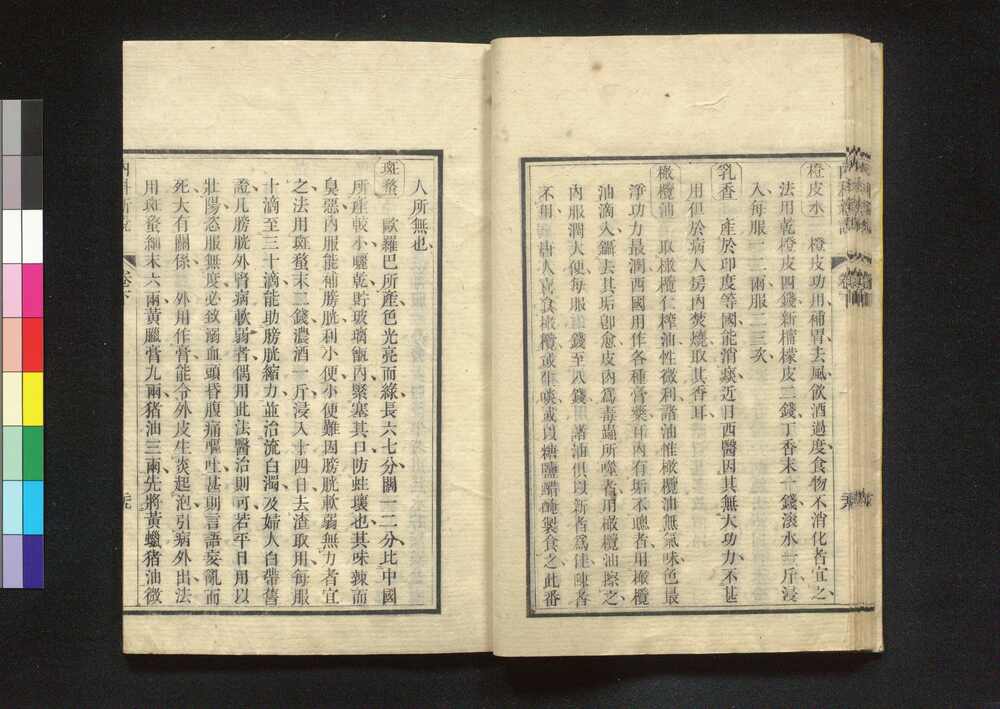 橙皮水 橙皮功用補胃去風飲酒過度食物不消化者宜之
法用乾橙皮四錢新檸檬皮二錢丁香末一錢滾水一斤浸
入每服一二兩服二三次
乳香 產於印度等國能消痰近日西醫因其無大功力不甚
用但於病人房內焚燒取其香耳
橄欖油 取橄欖仁榨油性微利諸油惟橄欖油無氣味色最
淨功力最潤西國用作各種膏藥耳內有垢不聰者用橄欖
油滴入鑷去其垢卽愈皮肉為毒蟲所嚙者用橄欖油擦之
內服潤大便每服錢至八錢用諸油俱以新者為佳陳者
不用唐人喜食橄欖或生啖或以糖鹽醋醃製食之此番
人所無也
斑蝥 歐羅巴所產色光亮而綠長六七分闊一二分比中國
所產較小曬乾貯玻璃瓶內緊塞其口防蛀壞也其味辣而
臭惡內服能補膀胱利小便小便難因膀胱軟弱無力者宜
之法用斑蝥末二錢濃酒一斤浸入十四日去渣取用每服
十滴至三十滴能助膀胱縮力並治流白濁及婦人白帶舊
證凡膀胱外腎病軟弱者偶用此法醫治則可若平日用以
壯陽恣服無度必致溺血頭昏腹痛嘔吐甚則言語妄亂而
死大有關係 外用作膏能令外皮生炎起泡引病外出法
用斑蝥細末六兩黃臘膏九兩猪油三兩先將黃蠟猪油微
內科新說 卷下